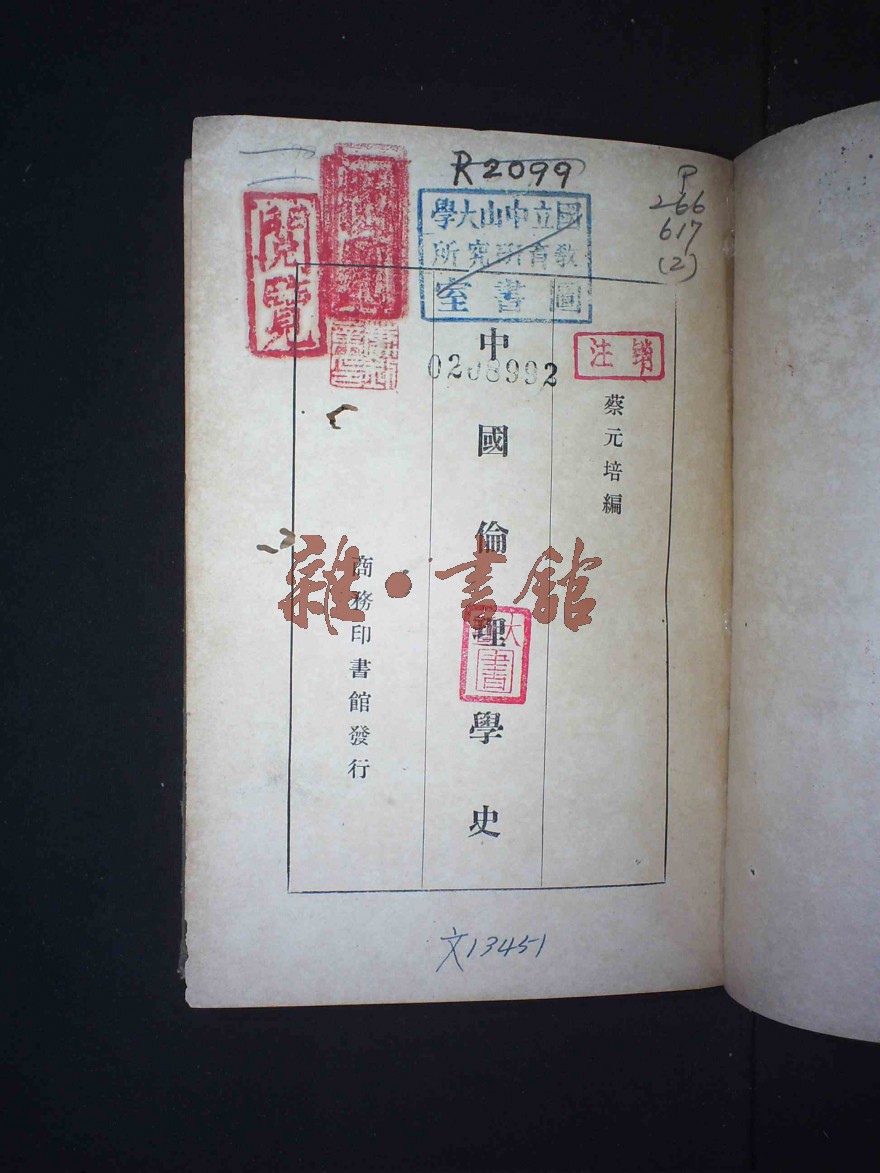 R2099
P
266
617
(2)
閱覽
國立中山大學
教育研究所
圖書室
注銷
0208992
蔡元培編
中國倫理學史
商務印書館發行
雜·書館
文13451